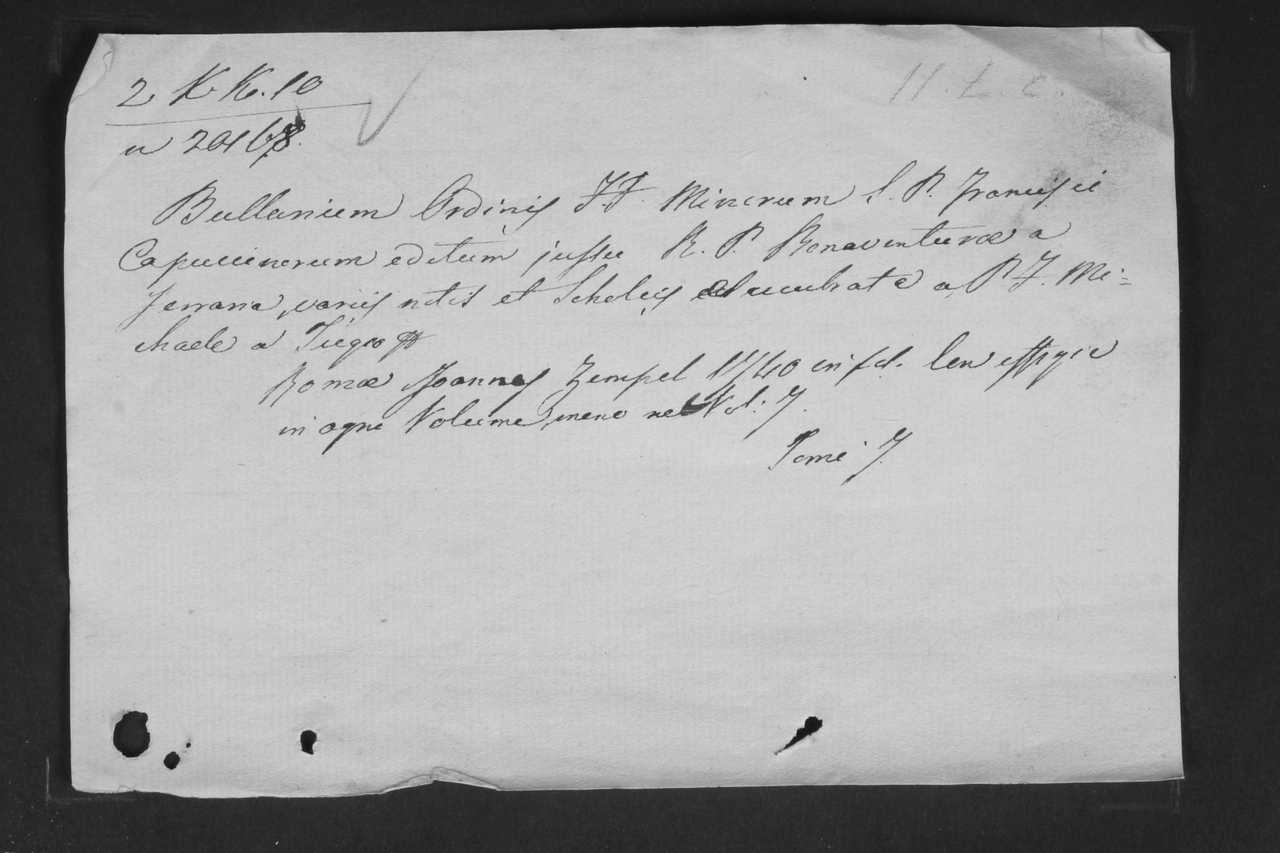 2 K K. 10
11. L. c.
n 20167/8.
Bullarium Ordinis FF. Minorum S. P. Francisci
Capucinorum editum jussu R. P. Bonaventuræ a
Ferraria, variis notis et Scholiis elucubrate a P. F. Mi=
chaele a Tugio
Romæ Joannes Zempel 1740 in fol. Con effigie
in ogni Volume, meno nel Vol: 7.
Tomi 7.